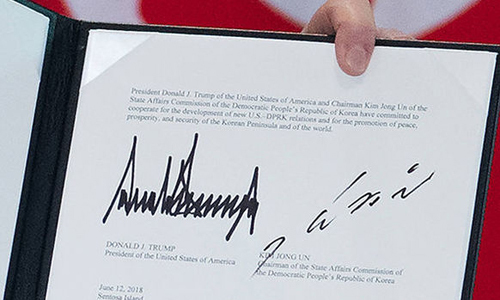 President Donald J. Trump of the United States of America and Chairman Kim Jong Un of the
State Affairs Commission of the Democratic People's Republic of Korea have committed to
cooperate for the development of new U.S.-DPRK relations and for the promotion of peace,
prosperity, and security of the Korean Peninsula and of the world.
DONALD J. TRUMP
President of the United States of America
KIM JONG UN
Chairman of the State Affairs Commission of
the Democratic People's Republic of Korea
June 12, 2018
Sentosa Island